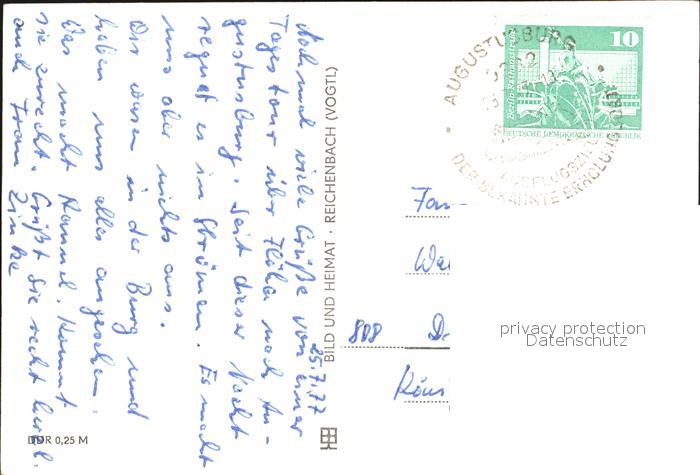 25.7.77
Noch mal viele Grüße von einer
Tagestour über Flöha nach Au-
gustusburg. Seit dieser Nacht
regnet es in Strömen. Es macht
uns aber nichts aus.
Wir waren in der Burg und
haben uns alles angesehen.
Was macht Hannel. Kommt
sie zurecht. Grüßt Sie recht herzl.
auch Frau Zinke
BILD UND HEIMAT · REICHENBACH (VOGTL)
DDR 0,25 M
AUGUSTUSBURG
AUSFLUGSZIEL
DER BEKANNTE ERHOLUNGSORT
Berlin, Rathausstraße
10
DEUTSCHE DEMOKRATISCHE REPUBLIK
Fam
808
privacy protection
Datenschutz